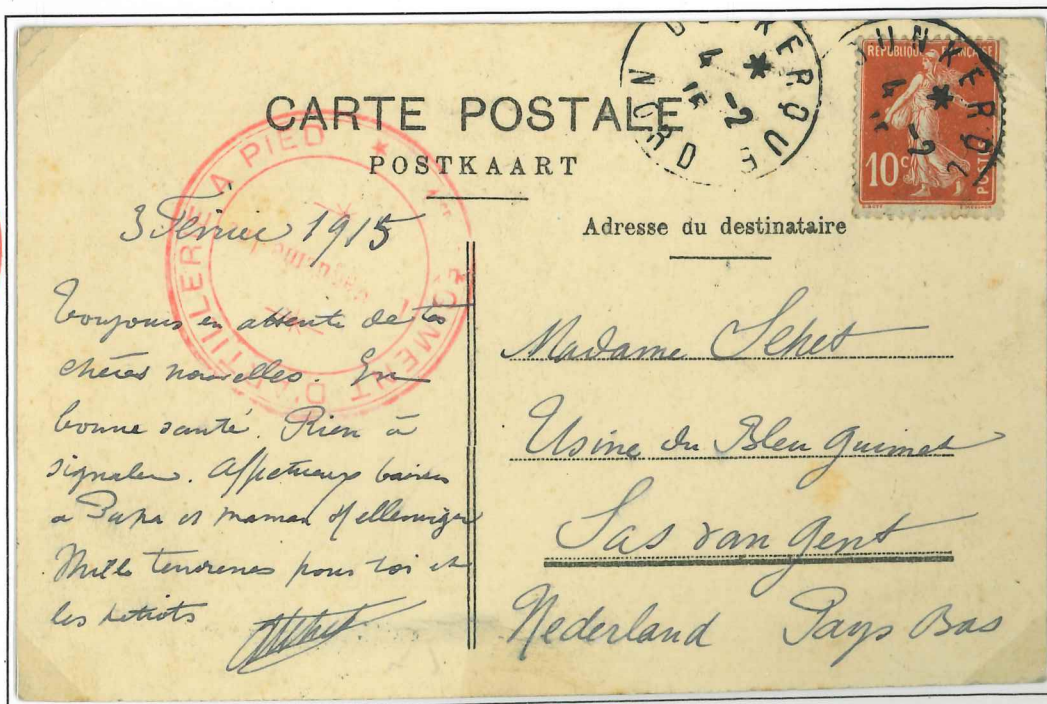 CARTE POSTALE
POSTKAART
DUNKERQUE
NORD
4 -2 15
DUNKERQ
4 -2
REPUBLIQUE FRANÇAISE
10c
POSTES
A PIED
RÉGIMENT D'ARTILLERIE
3 Février 1915
Toujours en attente de tes
chères nouvelles. En
bonne santé. Rien à
signaler. Affectueux baisers
a Papa et maman
Mille tendresses pour toi et
les petiots
Adresse du destinataire
Madame Sehet
Usine du Bleu Guimet
Sas van Gent
Nederland Pays Bas